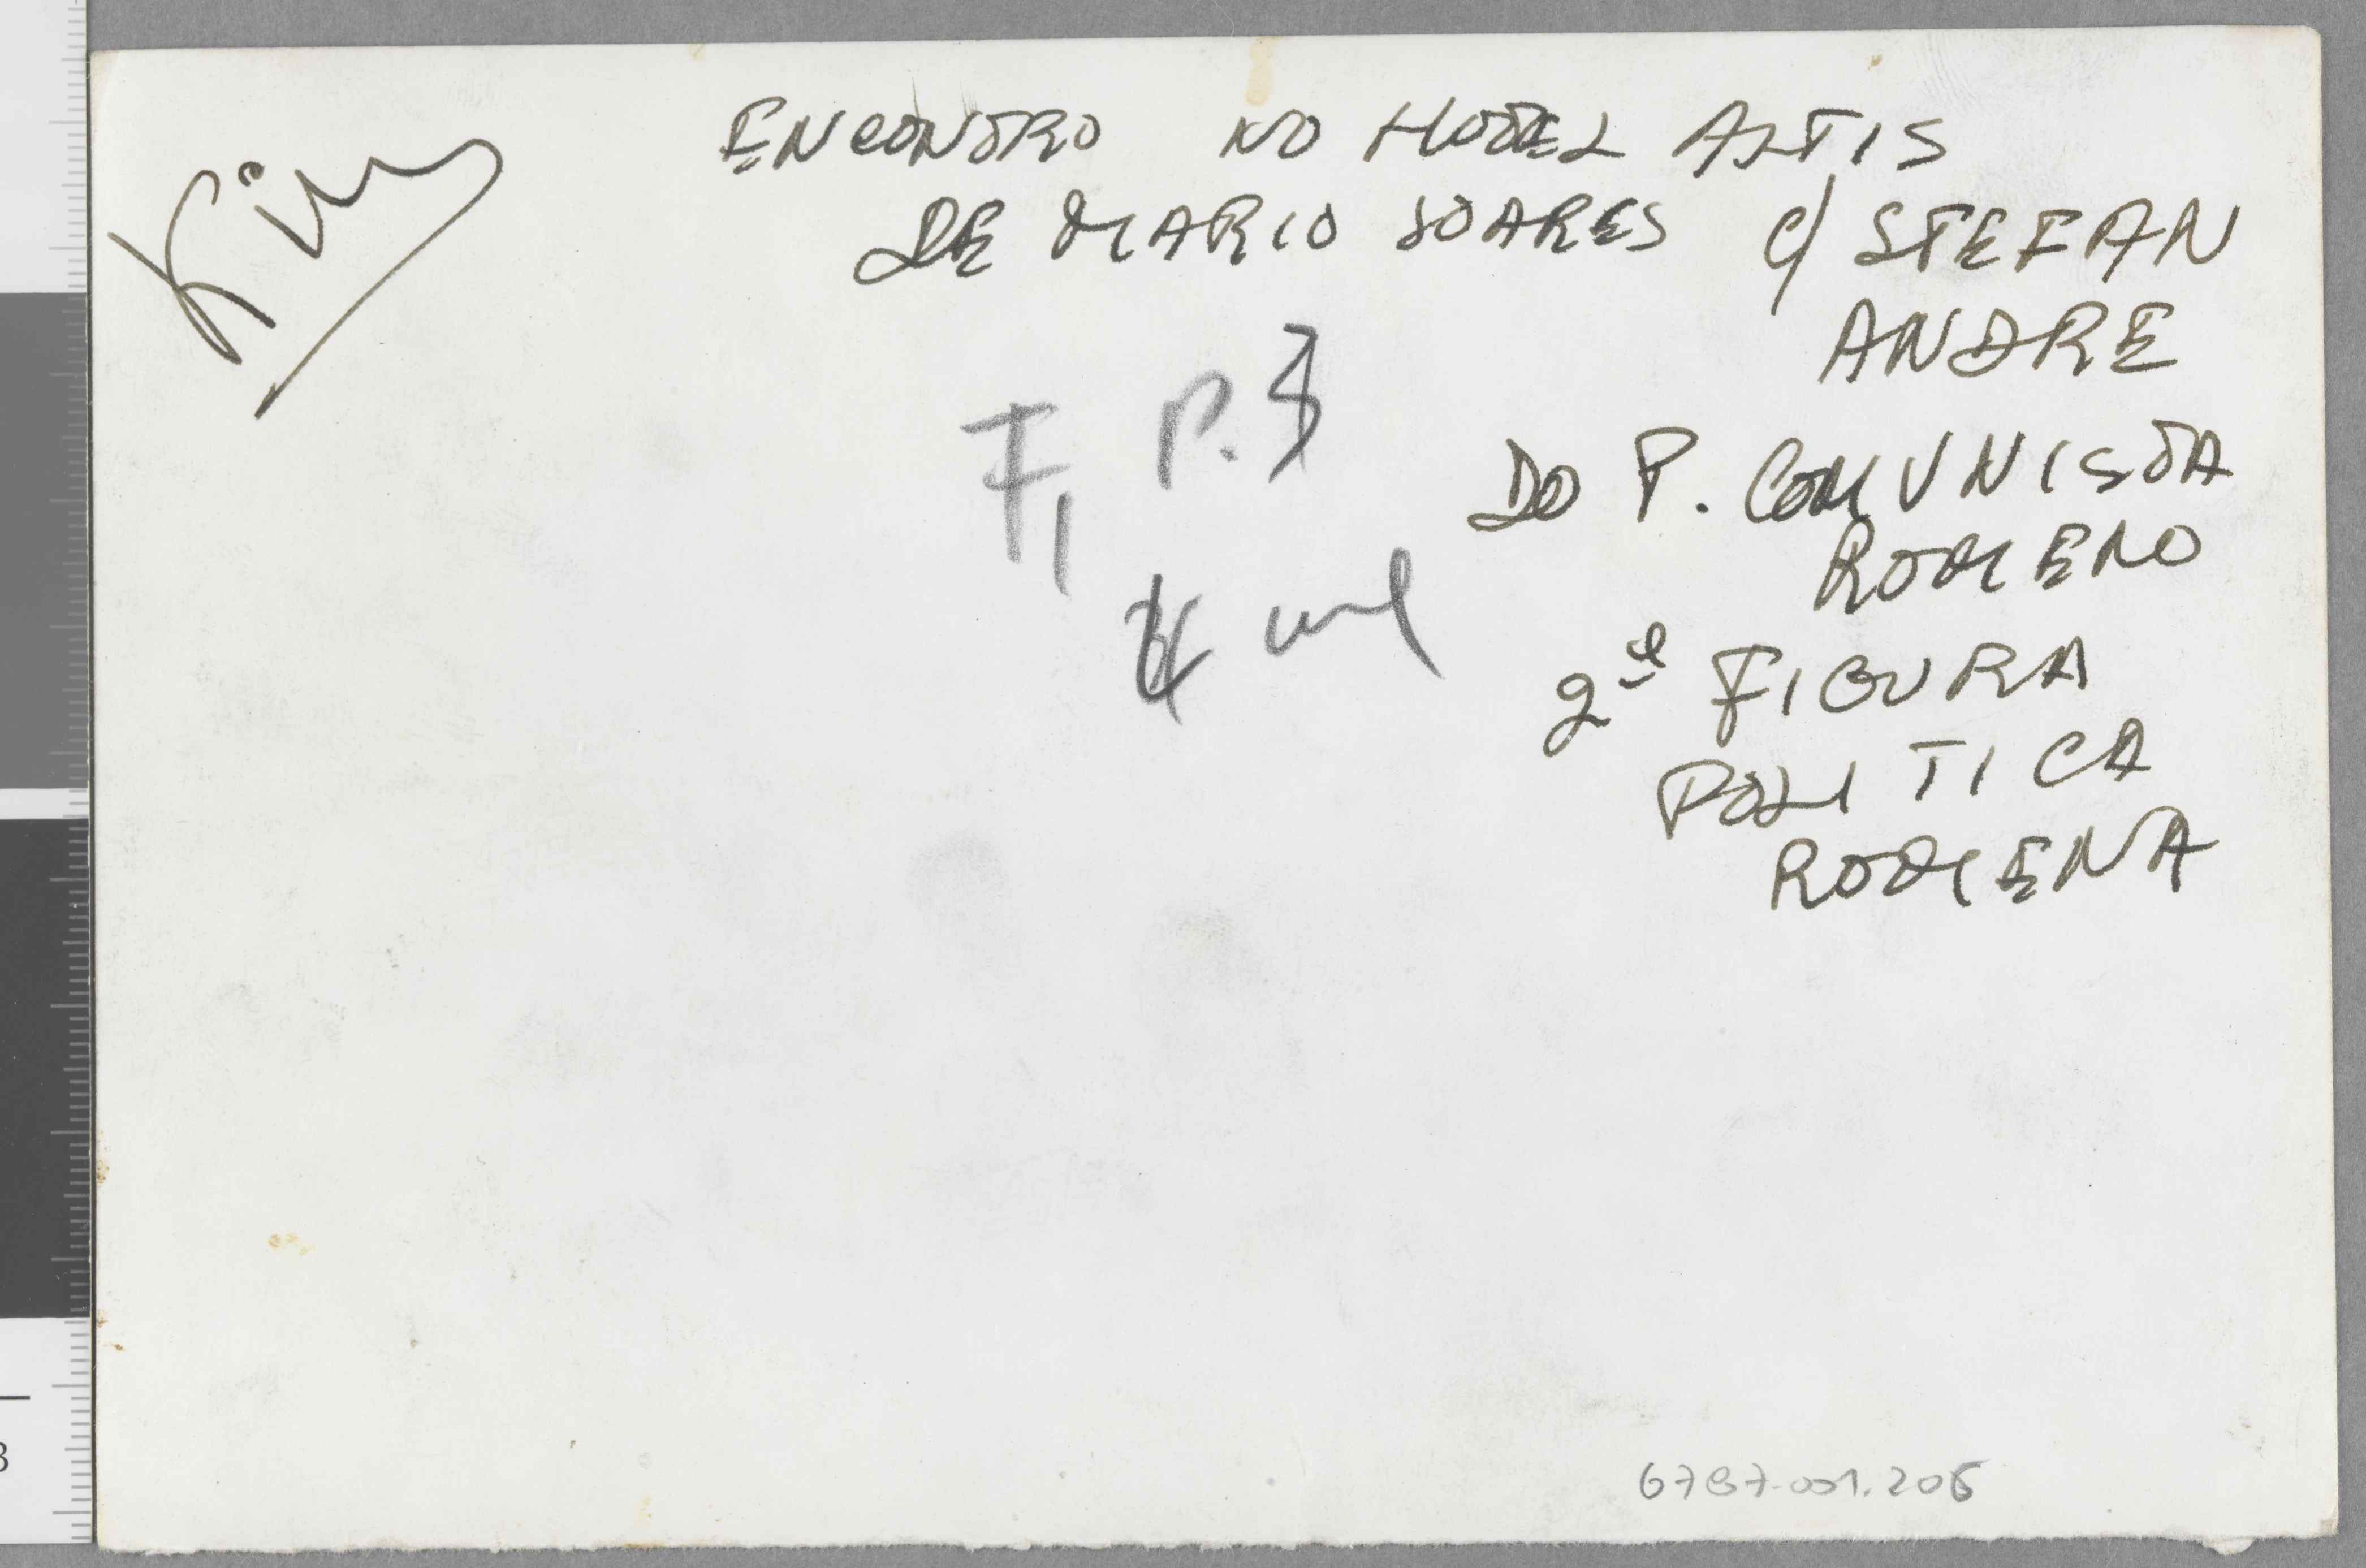 Kim
ENCONTRO NO HOTEL ALTIS
DE MARIO SOARES C/ STEFAN
ANDRE
DO P. COMUNISTA
ROMENO
2ª FIGURA
POLITICA
ROMENA
F, P. 3